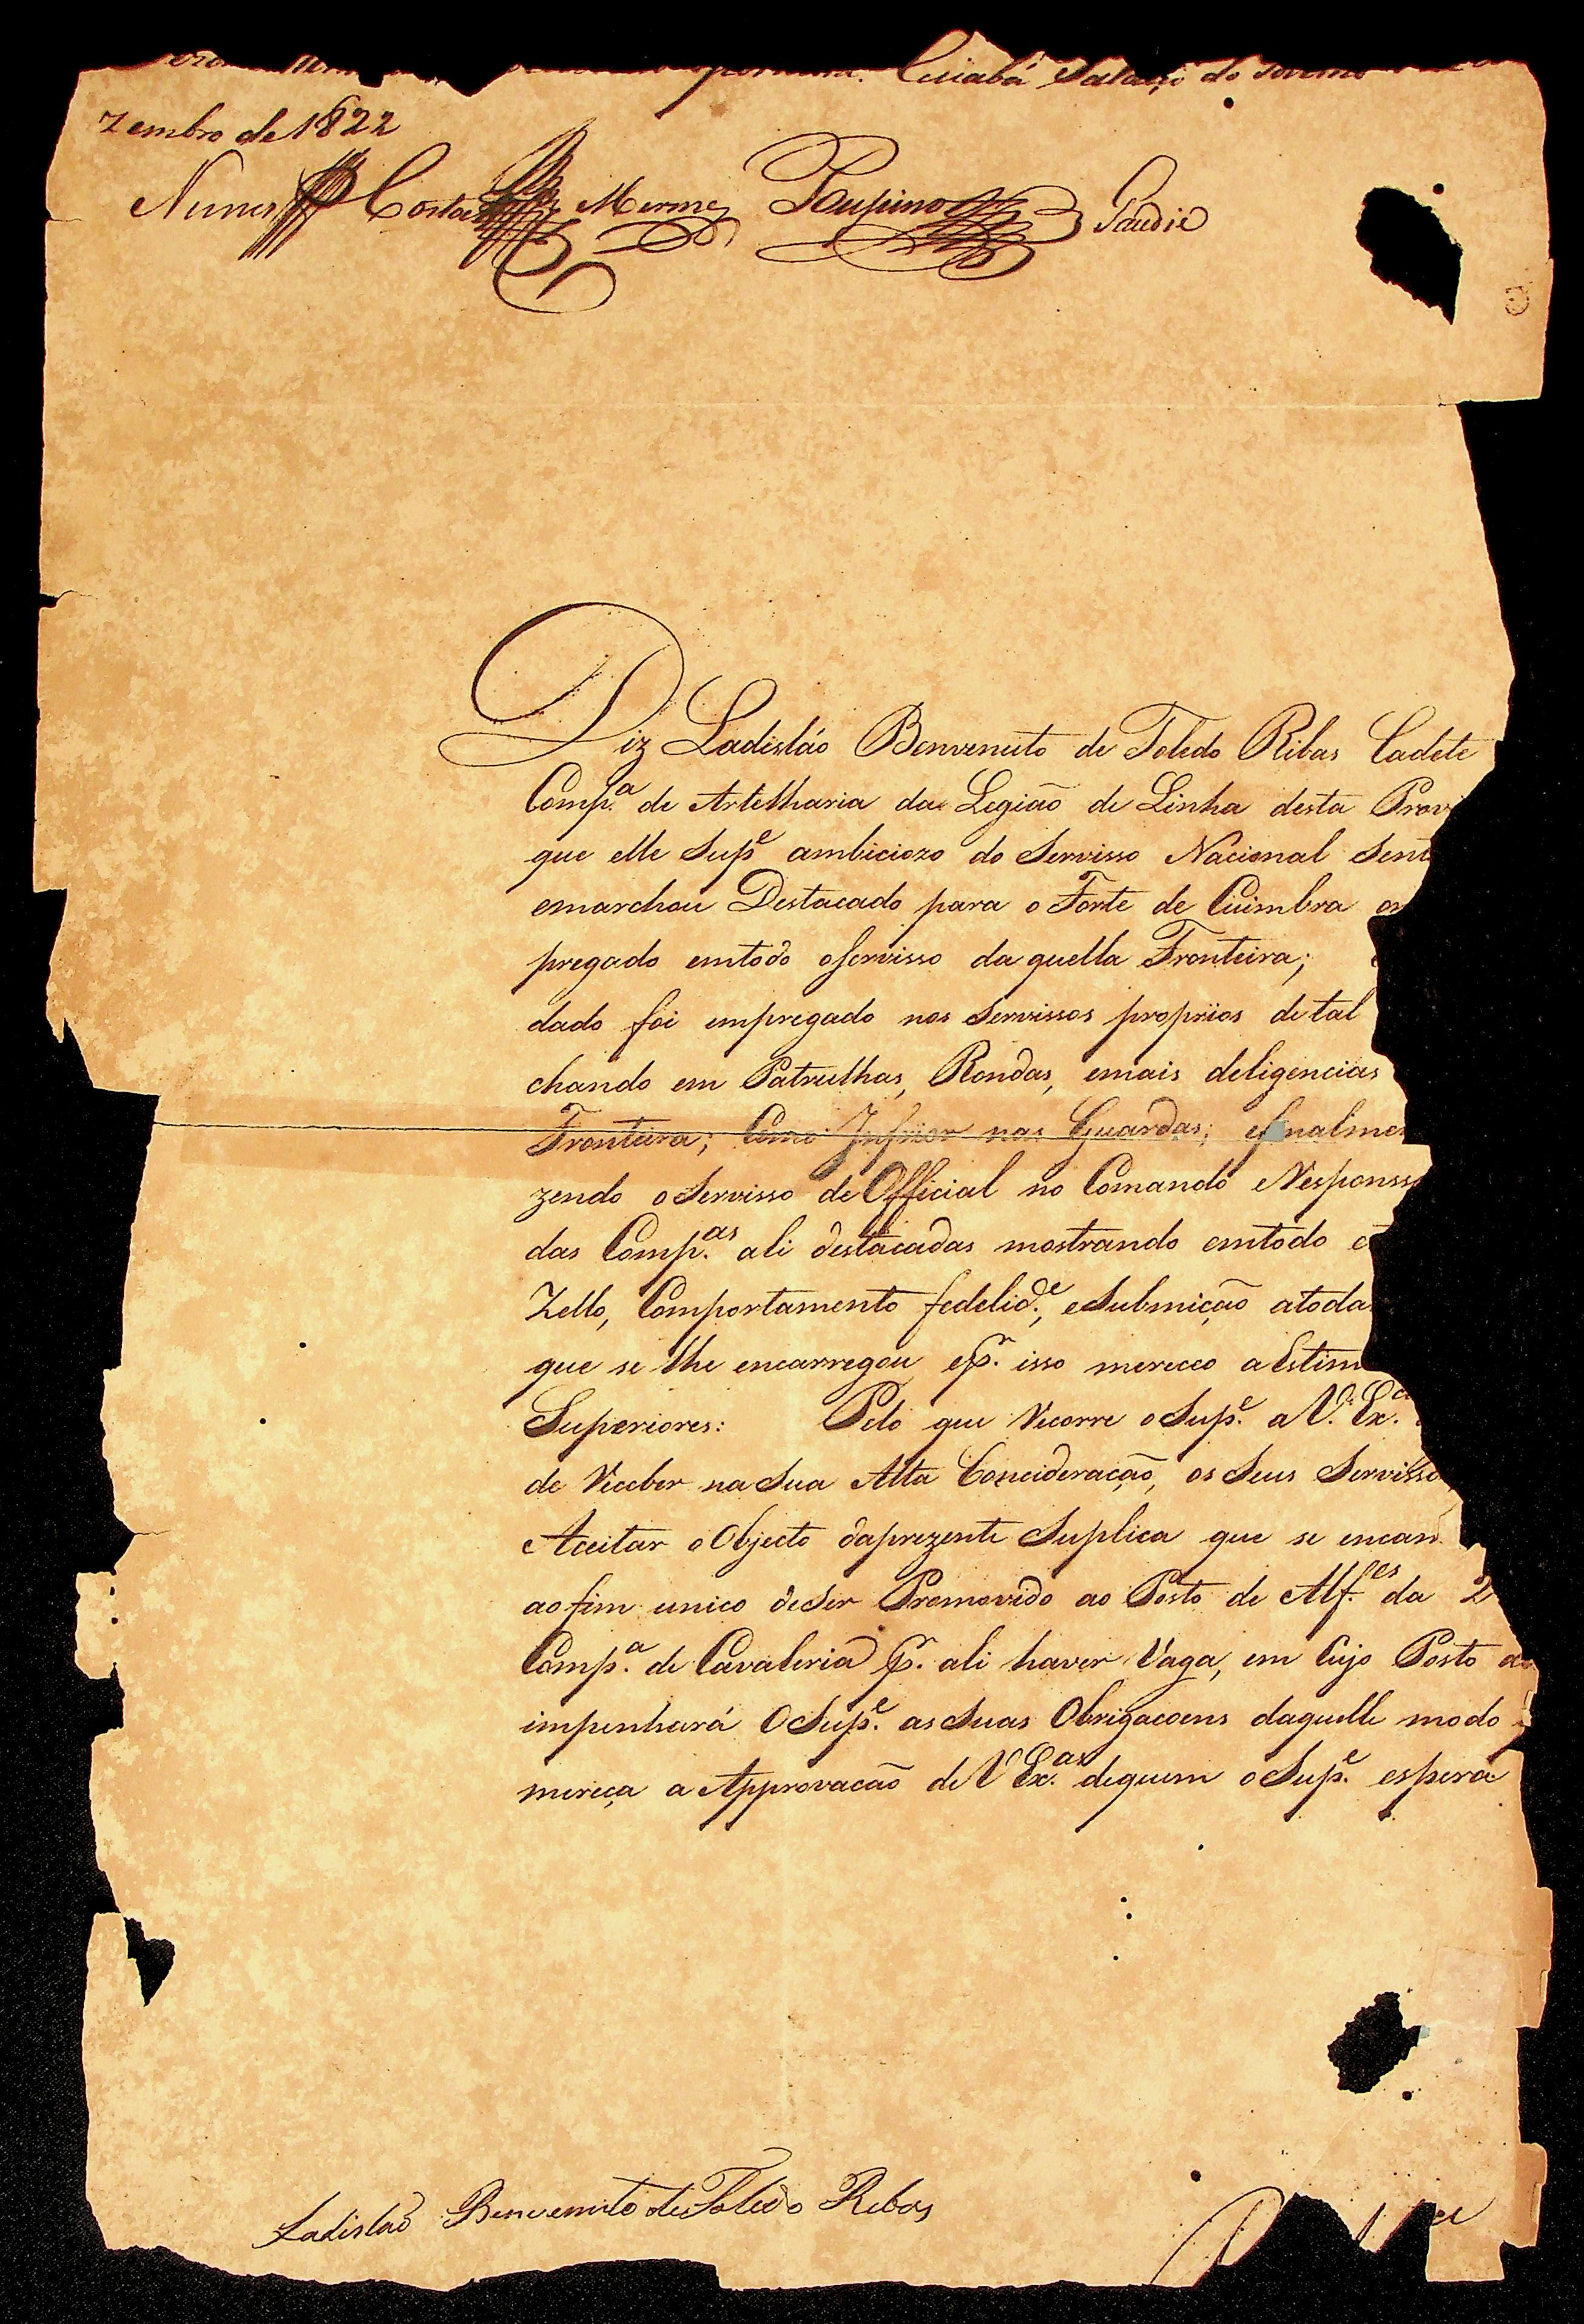 Cuiabá Palacio do Governo
zembro de 1822
Nunes Costa Merme Poupino Gaudie
Diz Ladisláo Benvenuto de Toledo Ribas Cadete
Comp.ª de Artelharia da Legião de Linha desta Provi
que elle Sup.e ambiciozo do Servisso Nacional Sent
emarchou Destacado para o Forte de Cuimbra on
pregado emtodo oservisso daquella Fronteira;
dado foi empregado nos Servissos propriios de tal
chando em Patrulhas, Rondas, emais deligencias
Fronteira; Como Inferior nas Guardas; efinalmen
zendo o Servisso de Official no Comando eResponss
das Comp.as ali destacadas mostrando emtodo et
Zello, Comportamento fedelid.e, eSubmição atoda
que se lhe encarregou ep.r isso mereceo a Estim
Superiores: Pelo que Recorre o Sup.e a V. Ex.a
de Receber na Sua Alta Concideração, os Seus Servisso
Aceitar o Objecto daprezente Suplica que se encam
ao fim unico deSer Promovido ao Posto de Alf.es da 2
Comp.a de Cavaleria p.r ali haver Vaga, em Cujo Posto
impenhará O Sup.e as Suas Obrigacoens daquelle modo
mereça a Approvacão de V Ex.as dequem o Sup.e espera
Ladisláo Benvenuto de Toledo Ribas